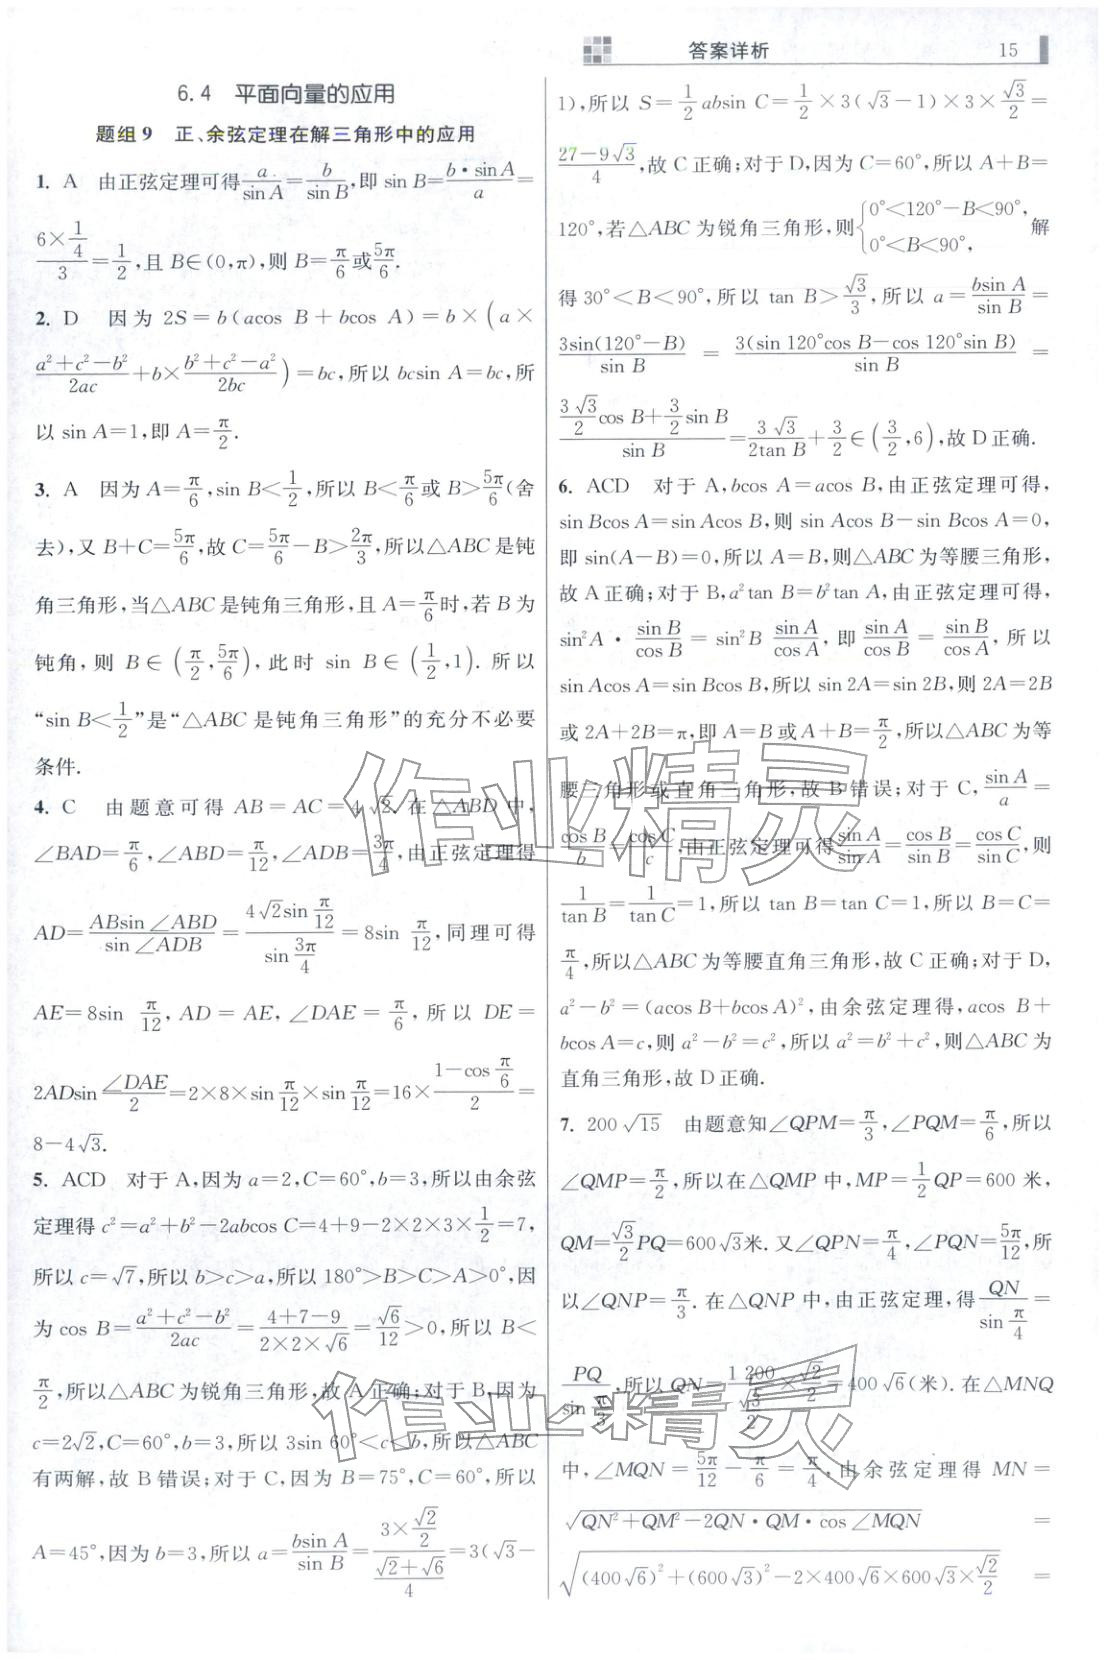 答案详析 15
6.4 平面向量的应用
题组9 正、余弦定理在解三角形中的应用
1. A 由正弦定理可得a/sin A=b/sin B,即 sin B=b·sin A/a=
(6×1/4)/3=1/2,且 B∈(0,π),则 B=π/6或5π/6.
2. D 因为 2S=b(acos B+bcos A)=b×(a×
(a²+c²-b²)/2ac+b×(b²+c²-a²)/2bc)=bc,所以 bcsin A=bc,所
以 sin A=1,即 A=π/2.
3. A 因为 A=π/6,sin B<1/2,所以 B<π/6或 B>5π/6(舍
去),又 B+C=5π/6,故 C=5π/6-B>2π/3,所以△ABC 是钝
角三角形,当△ABC 是钝角三角形,且 A=π/6时,若 B 为
钝角,则 B∈(π/2,5π/6),此时 sin B∈(1/2,1).所以
“sin B<1/2”是“△ABC 是钝角三角形”的充分不必要
条件.
4. C 由题意可得 AB=AC=4√2.在△ABD 中,
∠BAD=π/6,∠ABD=π/12,∠ADB=3π/4,由正弦定理得
AD=ABsin∠ABD/sin∠ADB=(4√2sin π/12)/(sin 3π/4)=8sin π/12,同理可得
AE=8sin π/12,AD=AE,∠DAE=π/6,所以 DE=
2ADsin ∠DAE/2=2×8×sin π/12×sin π/12=16×(1-cos π/6)/2=
8-4√3.
5. ACD 对于 A,因为 a=2,C=60°,b=3,所以由余弦
定理得 c²=a²+b²-2abcos C=4+9-2×2×3×1/2=7,
所以 c=√7,所以 b>c>a,所以 180°>B>C>A>0°,因
为 cos B=(a²+c²-b²)/2ac=(4+7-9)/(2×2×√6)=√6/12>0,所以 B<
π/2,所以△ABC 为锐角三角形,故 A 正确;对于 B,因为
c=2√2,C=60°,b=3,所以 3sin 60°<c<b,所以△ABC
有两解,故 B 错误;对于 C,因为 B=75°,C=60°,所以
A=45°,因为 b=3,所以 a=bsin A/sin B=(3×√2/2)/((√2+√6)/4)=3(√3-
1),所以 S=1/2absin C=1/2×3(√3-1)×3×√3/2=
(27-9√3)/4,故 C 正确;对于 D,因为 C=60°,所以 A+B=
120°,若△ABC 为锐角三角形,则{0°<120°-B<90°, 0°<B<90°, 解
得 30°<B<90°,所以 tan B>√3/3,所以 a=bsin A/sin B=
3sin(120°-B)/sin B=3(sin 120°cos B-cos 120°sin B)/sin B=
(3√3/2cos B+3/2sin B)/sin B=3√3/2tan B+3/2∈(3/2,6),故 D 正确.
6. ACD 对于 A,bcos A=acos B,由正弦定理可得,
sin Bcos A=sin Acos B,则 sin Acos B-sin Bcos A=0,
即 sin(A-B)=0,所以 A=B,则△ABC 为等腰三角形,
故 A 正确;对于 B,a²tan B=b²tan A,由正弦定理可得,
sin²A·sin B/cos B=sin²B sin A/cos A,即 sin A/cos B=sin B/cos A,所以
sin Acos A=sin Bcos B,所以 sin 2A=sin 2B,则 2A=2B
或 2A+2B=π,即 A=B 或 A+B=π/2,所以△ABC 为等
腰三角形或直角三角形,故 B 错误;对于 C,sin A/a=
cos B/b=cos C/c,由正弦定理可得sin A/sin A=cos B/sin B=cos C/sin C,则
1/tan B=1/tan C=1,所以 tan B=tan C=1,所以 B=C=
π/4,所以△ABC 为等腰直角三角形,故 C 正确;对于 D,
a²-b²=(acos B+bcos A)²,由余弦定理得,acos B+
bcos A=c,则 a²-b²=c²,所以 a²=b²+c²,则△ABC 为
直角三角形,故 D 正确.
7. 200√15 由题意知∠QPM=π/3,∠PQM=π/6,所以
∠QMP=π/2,所以在△QMP 中,MP=1/2QP=600 米,
QM=√3/2PQ=600√3米.又∠QPN=π/4,∠PQN=5π/12,所
以∠QNP=π/3.在△QNP 中,由正弦定理,得QN/(sin π/4)=
PQ/(sin π/3),所以 QN=(1 200×√2/2)/(√3/2)=400√6(米).在△MNQ
中,∠MQN=5π/12-π/6=π/4,由余弦定理得 MN=
√(QN²+QM²-2QN·QM·cos∠MQN)=
√((400√6)²+(600√3)²-2×400√6×600√3×√2/2)=
作业精灵
作业精灵